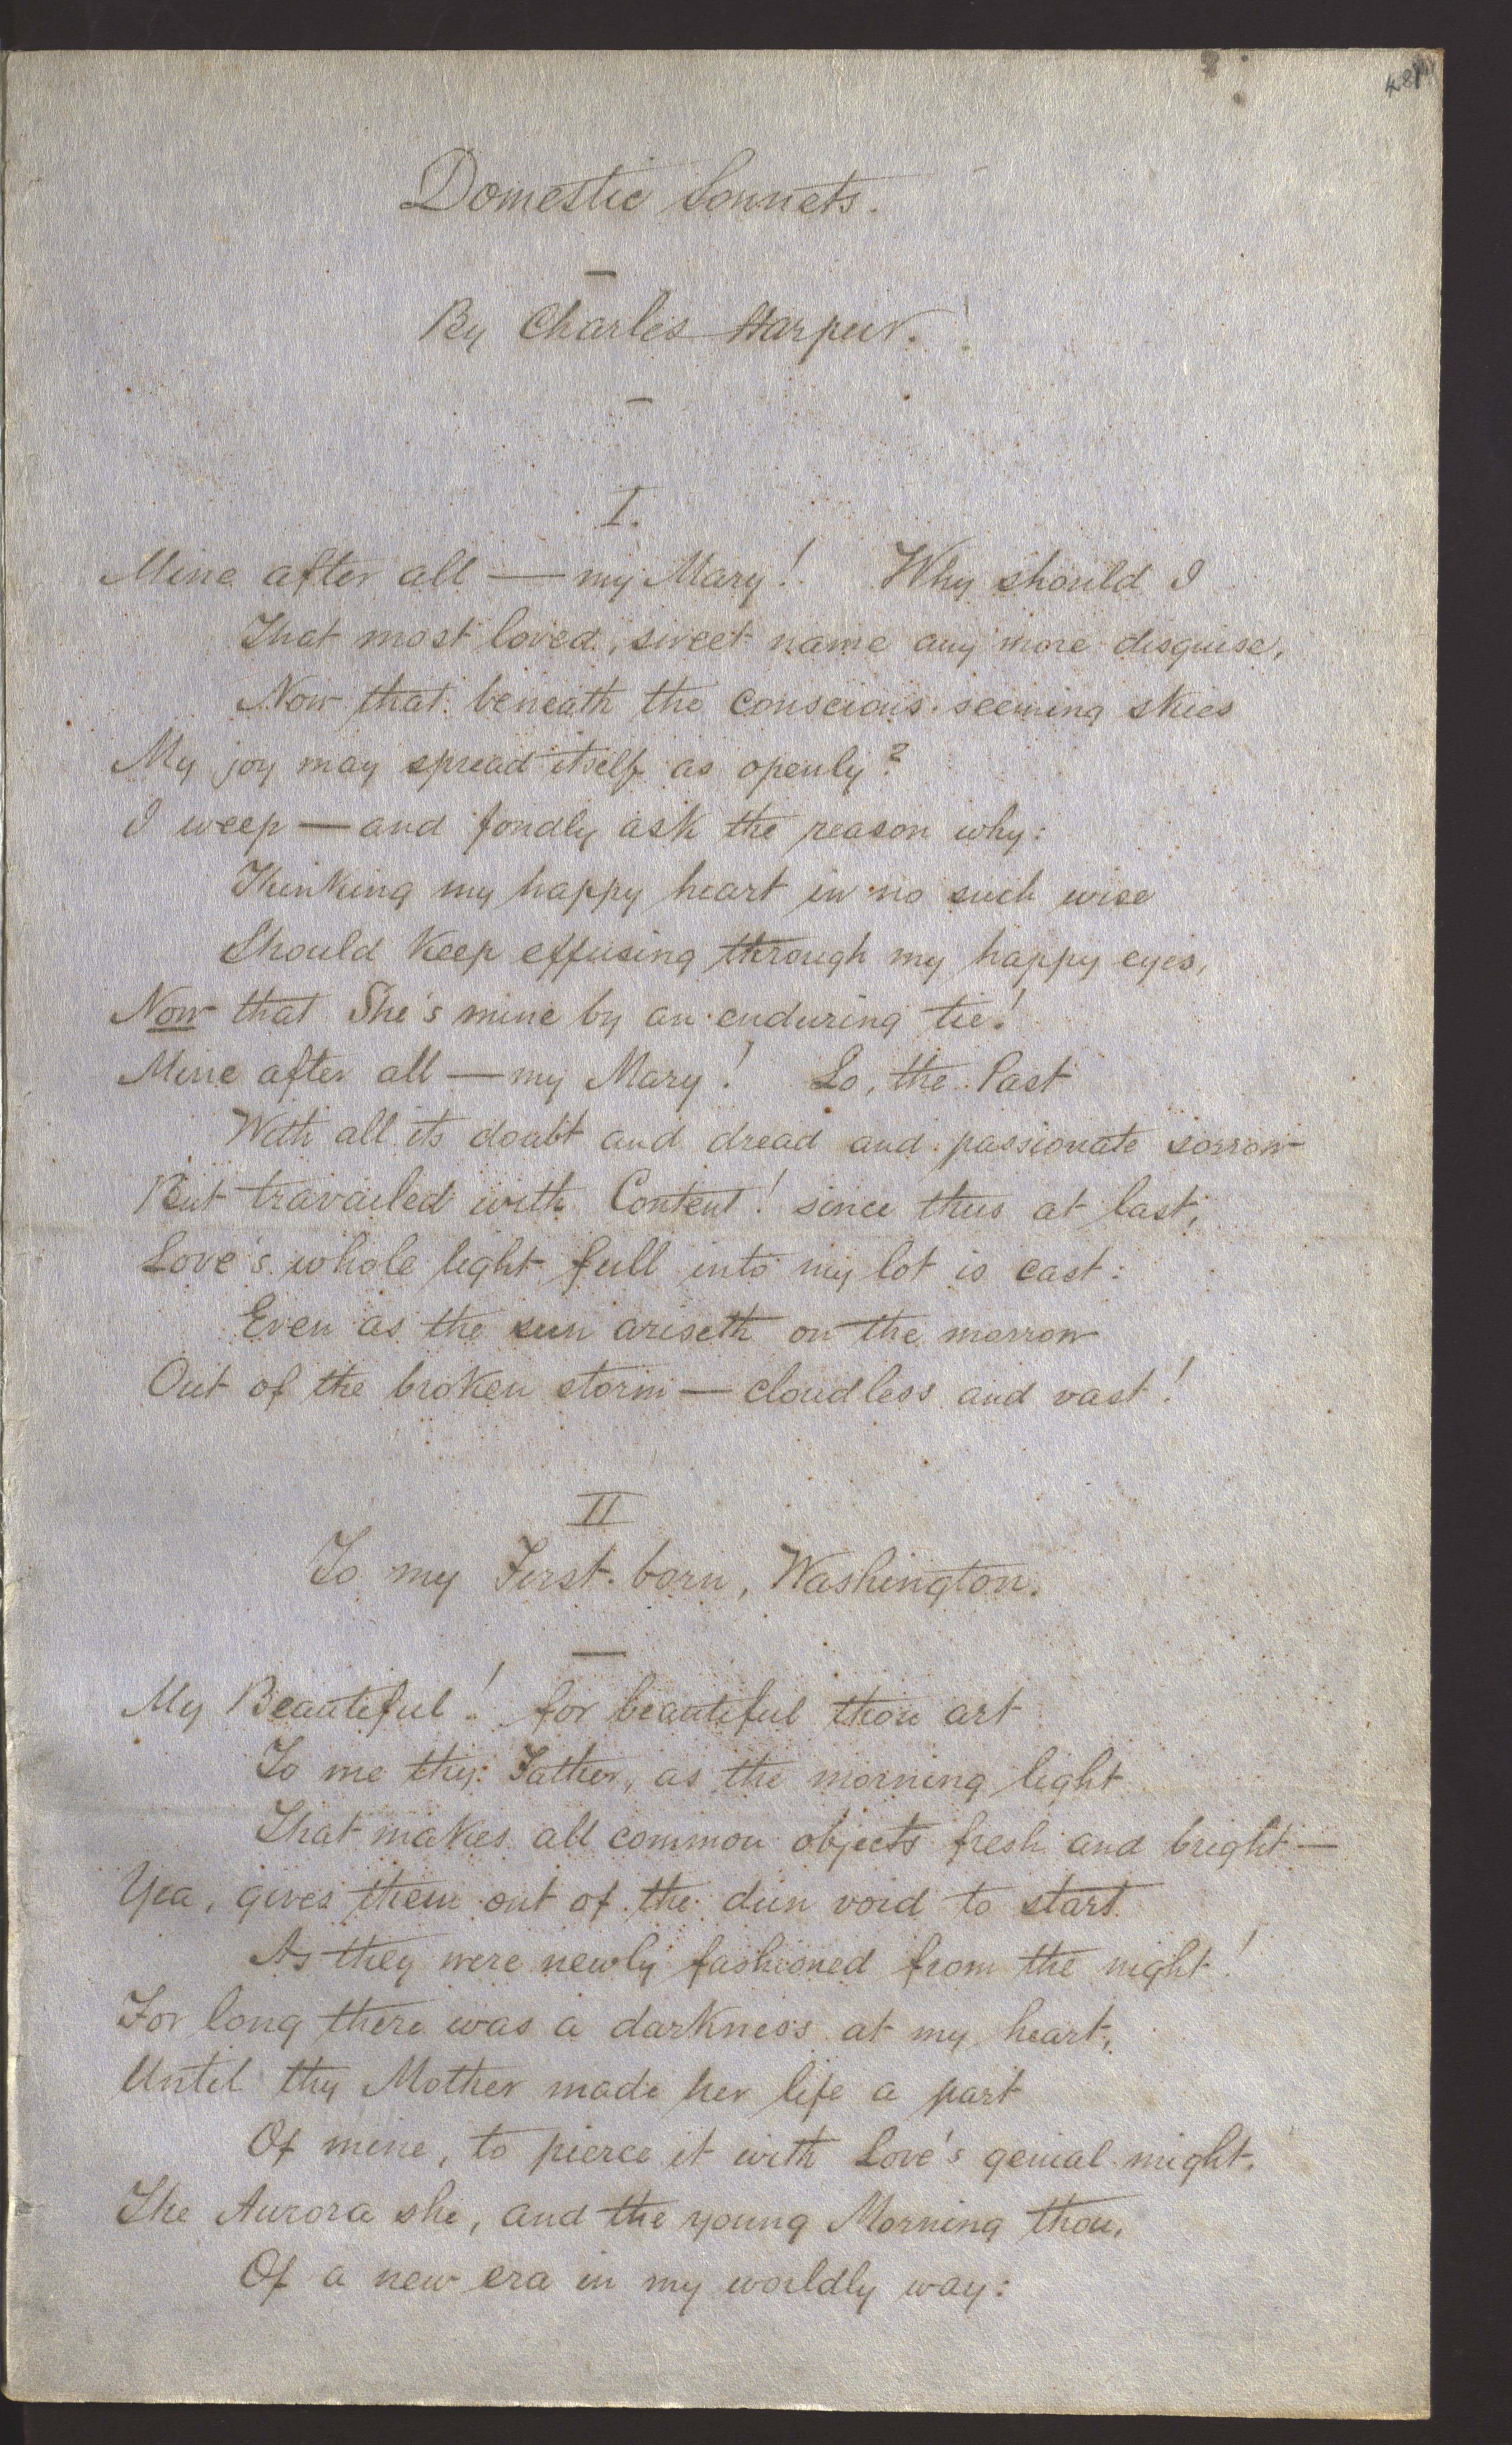 Domestic Sonnets.
By Charles Harpur.
I.
Mine after all — my Mary! Why should I
That most loved, sweet name any more disguise,
Now that beneath the conscious-seeming skies
My joy may spread itself as openly?
I weep — and fondly ask the reason why:
Thinking my happy heart in no such wise
Should keep effusing through my happy eyes,
Now that She's mine by an enduring tie!
Mine after all — my Mary! Lo, the Past
With all its doubt and dread and passionate sorrow
But travailed with Content! since thus at last,
Love's whole light full into my lot is cast:
Even as the sun ariseth on the morrow
Out of the broken storm — cloudless and vast!
II
To my First-born, Washington.
My Beautiful! for beautiful thou art
To me thy Father, as the morning light
That makes all common objects fresh and bright —
Yea, gives them out of the dun void to start
As they were newly fashioned from the night!
For long there was a darkness at my heart,
Until thy Mother made her life a part
Of mine, to pierce it with Love's genial might.
The Aurora she, and the young Morning thou,
Of a new era in my worldly way: